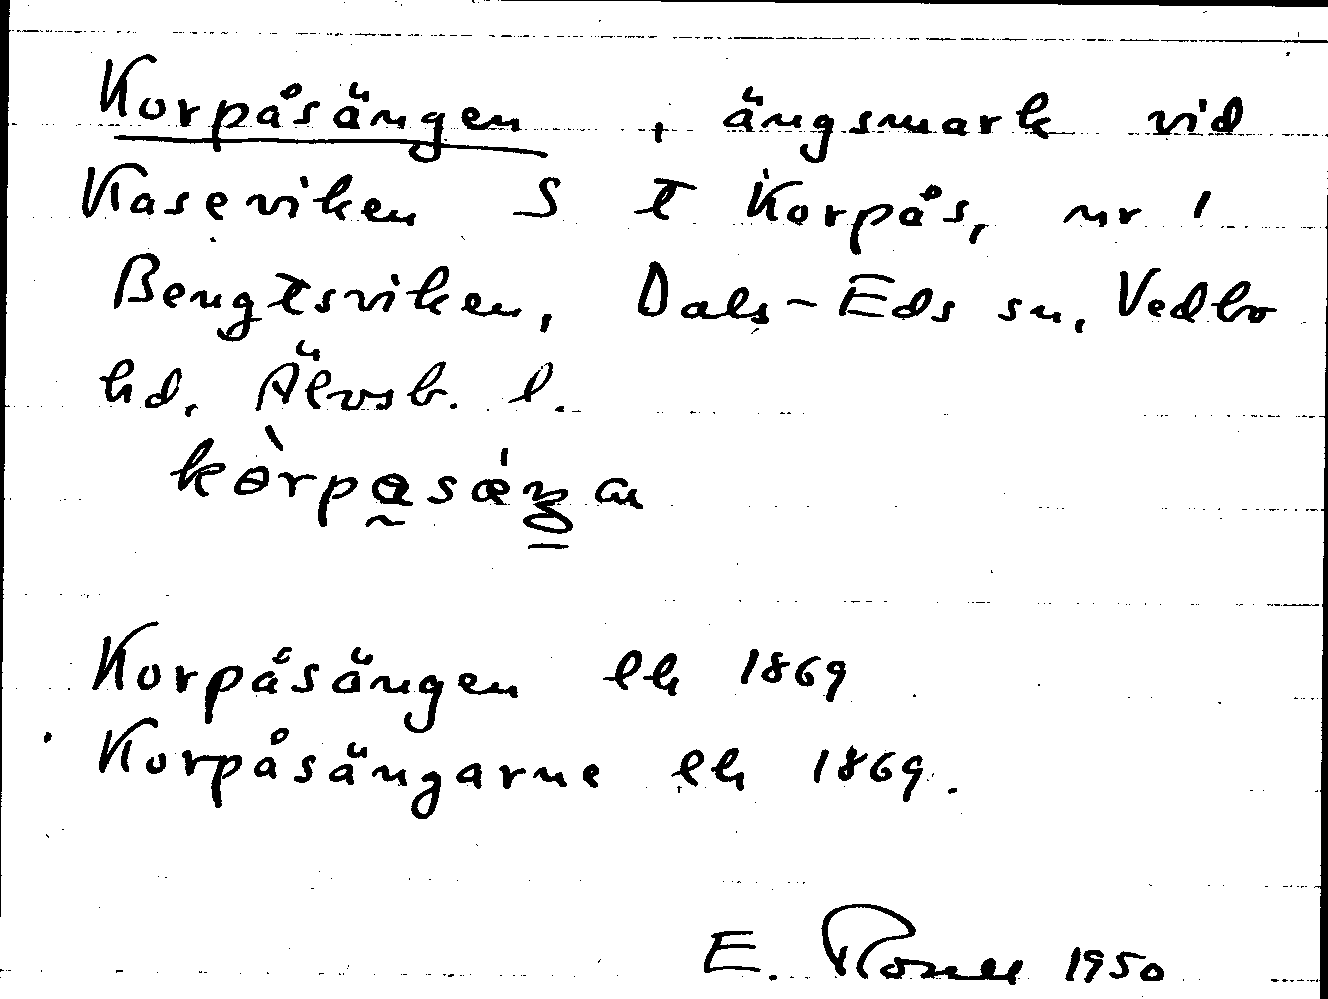 Korpåsängen, ängsmark vid
Kaseviken S t Korpås, nr 1
Bengtsviken, Dals-Eds sn, Vedbo
hd. Älvsb. l.
Korpåsängen lh 1869
Korpåsängarne lh 1869.
E. 1950